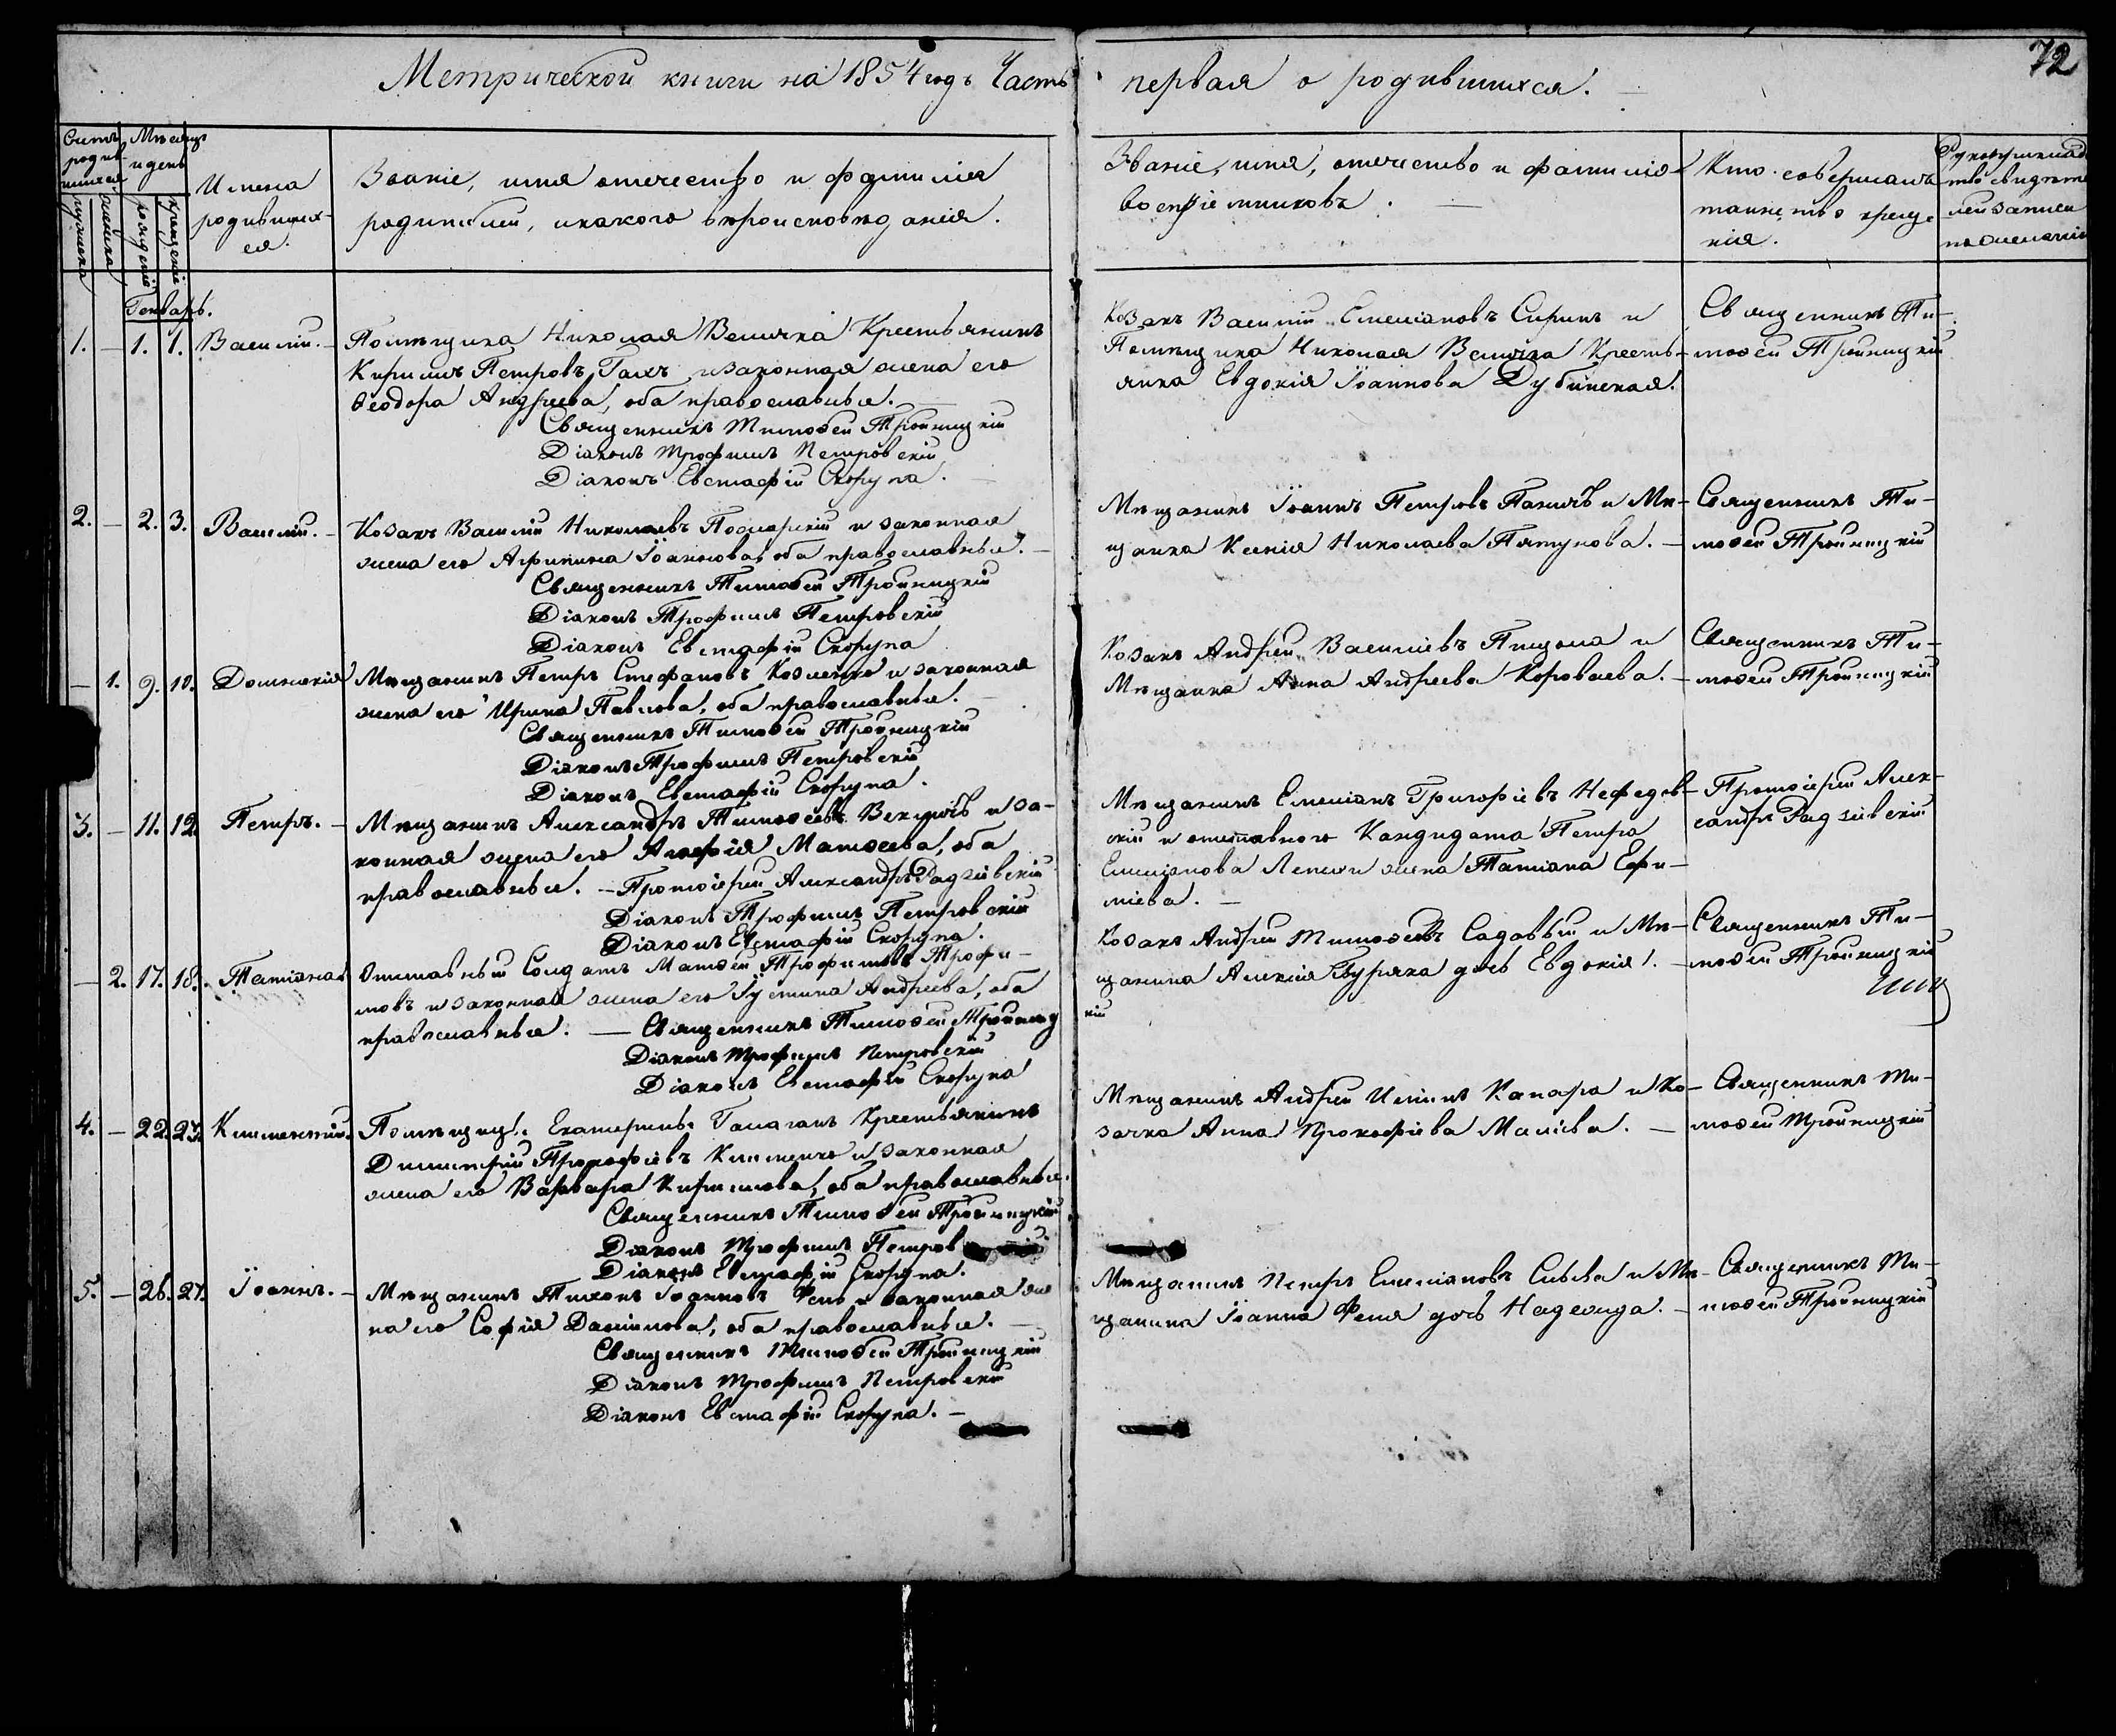 72
Метрической книги на 1854 годъ Часть первая о родившихся.
Счетъ родив-
шихся
Мѣсяцъ
и день
мужеска
женска
рожденія
крещенія
Имена
родивших-
ся.
Званіе, имя отечество и фамилія
родителей, и какого вѣроисповѣданія.
Званіе, имя, отечество и фамилія
воспріемниковъ.
Кто совершалъ
таинство креще-
нія.
Генварь.
1. — 1. 1. Василій. —
Помѣщика Николая Велички Крестьянинъ
Кирилъ Петровъ Гахъ и законная жена его
Ѳеодора Андреева, оба православные.
Священникъ Тимоѳей Тройницкій
Діаконъ Трофимъ Петровскій
Діаконъ Евстафій Скорупа.
Козакъ Василій Емеліановъ Сиринъ и
Помѣщика Николая Велички Кресть-
янка Евдокія Іоаннова Дубинская.
Священникъ Ти-
моѳей Тройницкій
2. — 2. 3. Василій. —
Козакъ Василій Николаевъ Пожарскій и законная
жена его Агрипина Іоаннова, оба православные. —
Священникъ Тимоѳей Тройницкій
Діаконъ Трофимъ Петровскій
Діаконъ Евстафій Скорупа
Мѣщанинъ Іоаннъ Петровъ и Мѣ-
щанка Ксенія Николаева Пятунова. —
Священникъ Ти-
моѳей Тройницкій
— 1. 9. 10. Домникія
Мѣщанинъ Петръ Стефановъ Козленко и законная
жена его Ирина Павлова, оба православные. —
Священникъ Тимоѳей Тройницкій
Діаконъ Трофимъ Петровскій
Діаконъ Евстафій Скорупа.
Козакъ Андрей Василіевъ и
Мѣщанка Анна Андреева Короваева. —
Священникъ Ти-
моѳей Тройницкій
3. — 11. 12. Петръ. —
Мѣщанинъ Александръ Тимоѳеевъ и за-
конная жена его Агафія Матѳеева, оба
православные. — Протоіерей Александръ Радзіевскій
Діаконъ Трофимъ Петровскій
Діаконъ Евстафій Скорупа.
Мѣщанинъ Емеліанъ Григоріевъ Нефедов-
скій и отставного Кандидата Петра
Емеліанова жена Татіана Ефи-
міева. —
Протоіерей Алек-
сандръ Радзіевскій
— 2. 17. 18. Татіана
Отставный Солдатъ Матѳей Трофимовъ Трофи-
мовъ и законная жена его Іустина Андреева, оба
православные. — Священникъ Тимоѳей Тройниц
кій
Діаконъ Трофимъ Петровскій
Діаконъ Евстафій Скорупа
Козакъ Андрей Тимоѳеевъ Садовый и Мѣ-
щанина Алексія Буряка дочь Евдокія. —
Священникъ Ти-
моѳей Тройницкій
4. — 22. 23. Климентій.
Помѣщицы Екатерины Галаганъ Крестьянинъ
Димитрій Прокофіевъ Клименко и законная
жена его Варвара Кирилова, оба православные.
Священникъ Тимоѳей Тройницкій
Діаконъ Трофимъ Петров
Діаконъ Евстафій Скорупа.
Мѣщанинъ Андрей Капара и Ко-
зачка Анна Прокофіева. —
Священникъ Ти-
моѳей Тройницкій
5. — 26. 27. Іоаннъ. —
Мѣщанинъ Тихонъ Іоанновъ Феня и законная же
на его Софія Даніилова, оба православные. —
Священникъ Тимоѳей Тройницкій
Діаконъ Трофимъ Петровскій
Діаконъ Евстафій Скорупа. —
Мѣщанинъ Петръ Емеліановъ и Мѣ-
щанина Іоанна Феня дочь Надежда. —
Священникъ Ти-
моѳей Тройницкій